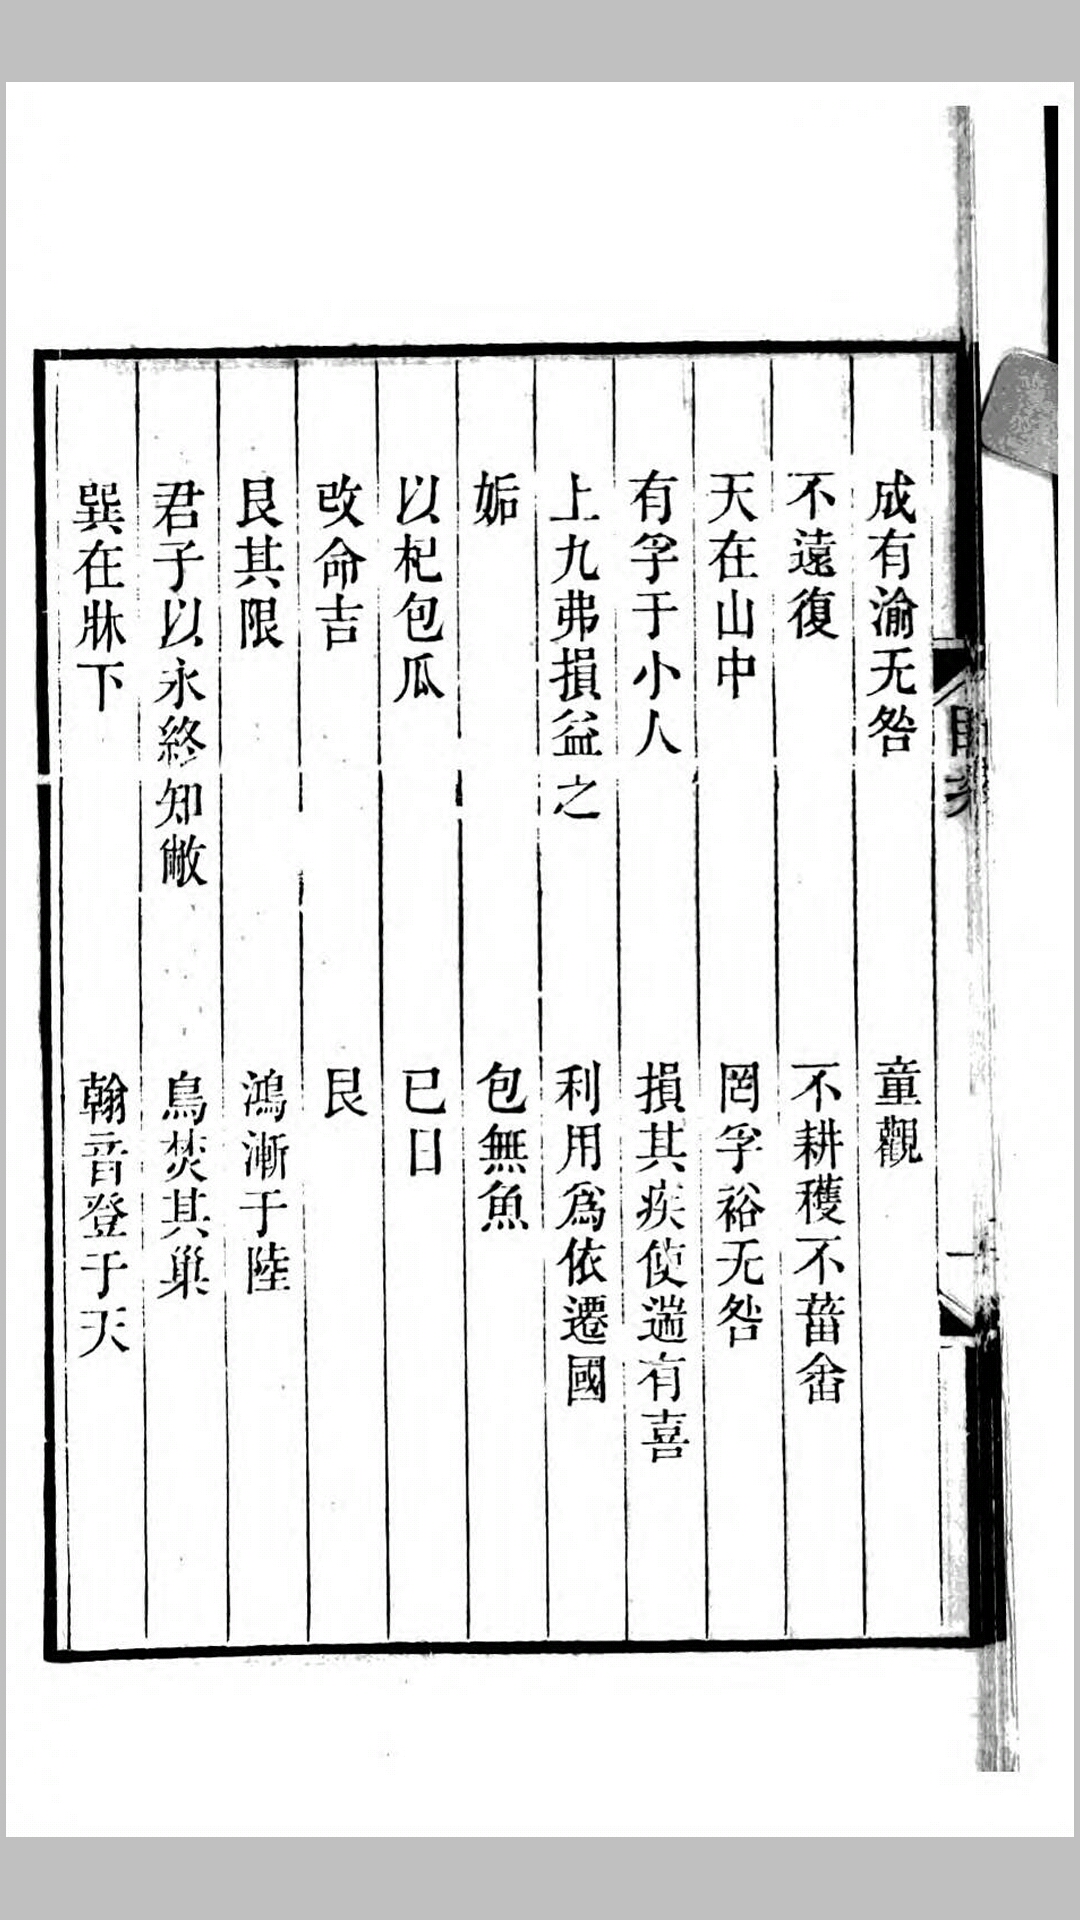 成有渝无咎　童觀
不遠復　不耕穫不菑畬
天在山中　罔孚裕无咎
有孚于小人　損其疾使遄有喜
上九弗損益之　利用爲依遷國
姤　包無魚
以杞包瓜　已日
改命吉　艮
艮其限　鴻漸于陸
君子以永終知敝　鳥焚其巢
巽在牀下　翰音登于天